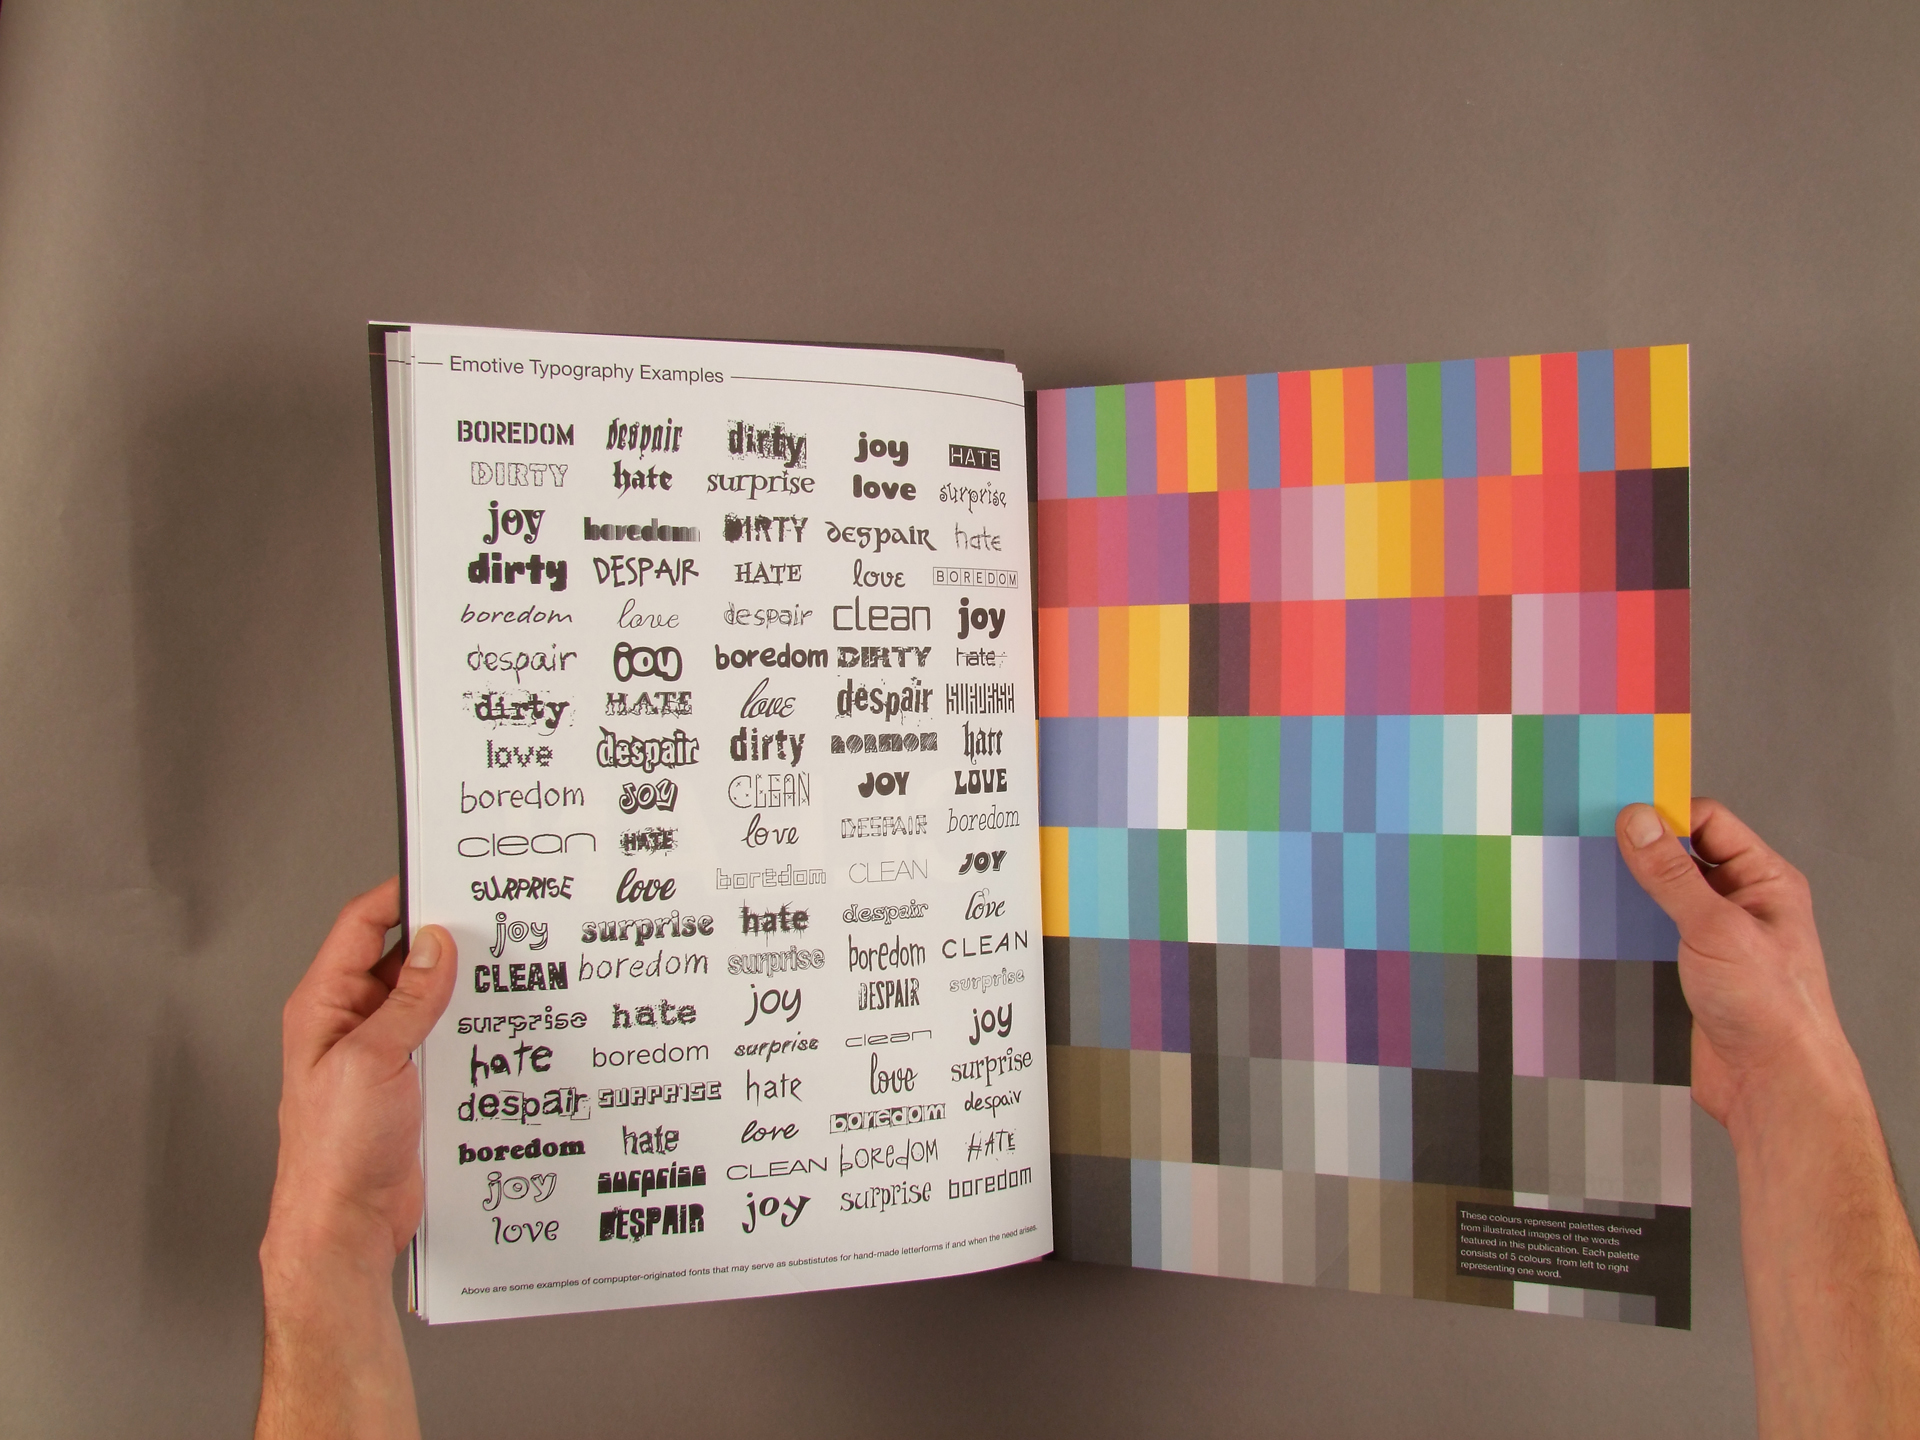 Emotive Typography Examples
BOREDOM despair dirty joy HATE
DIRTY hate surprise love surprise
joy boredom DIRTY despair hate
dirty DESPAIR HATE love BOREDOM
boredom love despair clean joy
despair joy boredom DIRTY hate
dirty HATE love despair
love despair dirty boredom hate
boredom JOY CLEAN JOY LOVE
clean HATE love DESPAIR boredom
SURPRISE love boredom CLEAN JOY
joy surprise hate despair love
CLEAN boredom surprise boredom CLEAN
surprise hate joy DESPAIR surprise
hate boredom surprise clean joy
despair SURPRISE hate love surprise
boredom hate love boredom despair
joy surprise CLEAN boREdOM HATE
love DESPAIR joy surprise boredom
Above are some examples of compupter-originated fonts that may serve as substistutes for hand-made letterforms if and when the need arises.
These colours represent palettes derived
from illustrated images of the words
featured in this publication. Each palette
consists of 5 colours from left to right
representing one word.